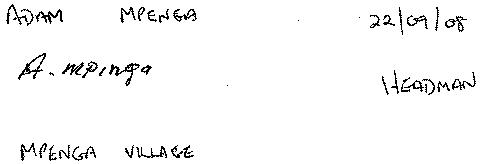 ADAM MPENGA 22/09/08
A. mpinga
HEADMAN
MPENGA VILLAGE